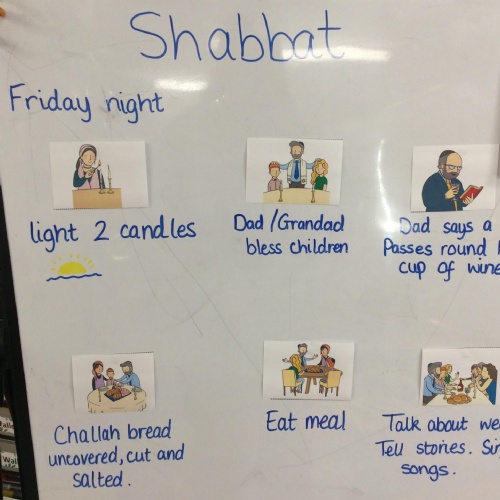 Shabbat
Friday night
light 2 candles
Dad/Grandad
bless children
Dad says a
Passes round
cup of wine
Challah bread
uncovered, cut and
salted.
Eat meal
Talk about
Tell stories.
songs.